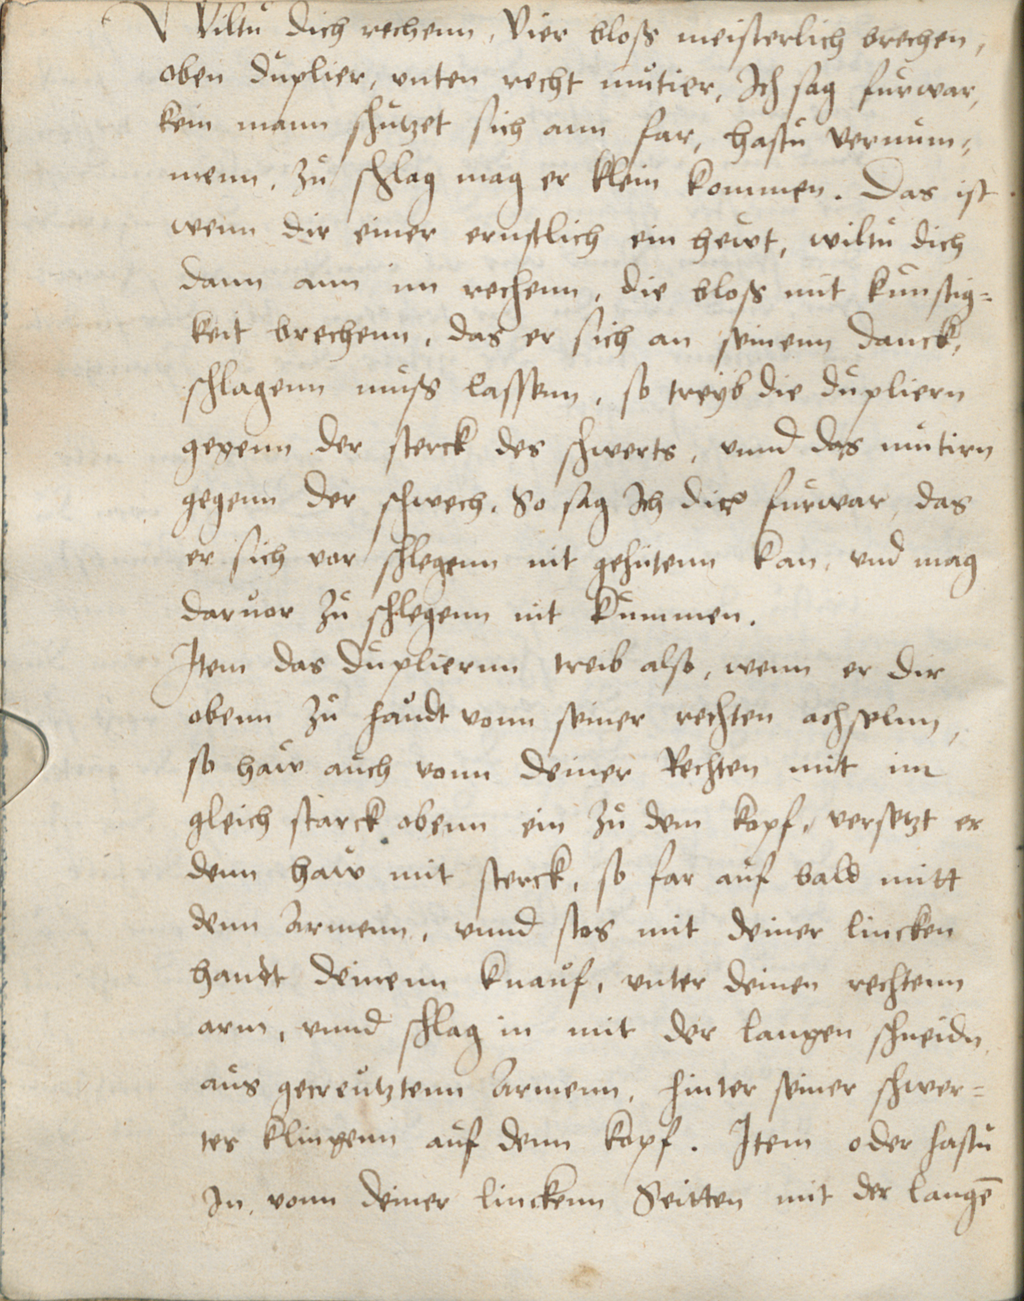 Wiltu dich rechenn, Vier bloss meisterlich brechen,
oben duplier, vnten recht mutier, Ich sag furwar,
kein mann schutzet sich ann far, hastu vernum=
menn, zu schlag mag er klein kommen. Das ist
wenn dir einer ernstlich ein hewt, wiltu dich
dann ann im rechenn, die bloss mit kunstig=
keit brechenn, das er sich an seinenn danck,
schlagenn muss lassenn, so treyb die dupliern
gegenn der sterck des schwerts, vnnd das mutirn
gegenn der schwech. So sag Ich dir furwar, das
er sich vor schlegenn nit gehutenn kan, vnd mag
daruor zu schlegenn nit kummen.
Item das duplierenn treib also, wenn er dir
obenn zu haudt vonn seiner rechten achselnn,
so haw auch vonn deiner Rechten mit im
gleich starck obenn ein zu dem kopf, versetzt er
denn haw mit sterck, so far auf bald mitt
denn Armenn, vnnd stos mit deiner lincken
handt deinenn knauf, vnter deinen rechtenn
arm, vnnd schlag in mit der langen schneidn
aus gecreutztenn Armenn, hinter seiner schwer=
tes klingenn auf denn kopf. Item oder hastu
In vonn deiner linckenn Seitten mit der langē